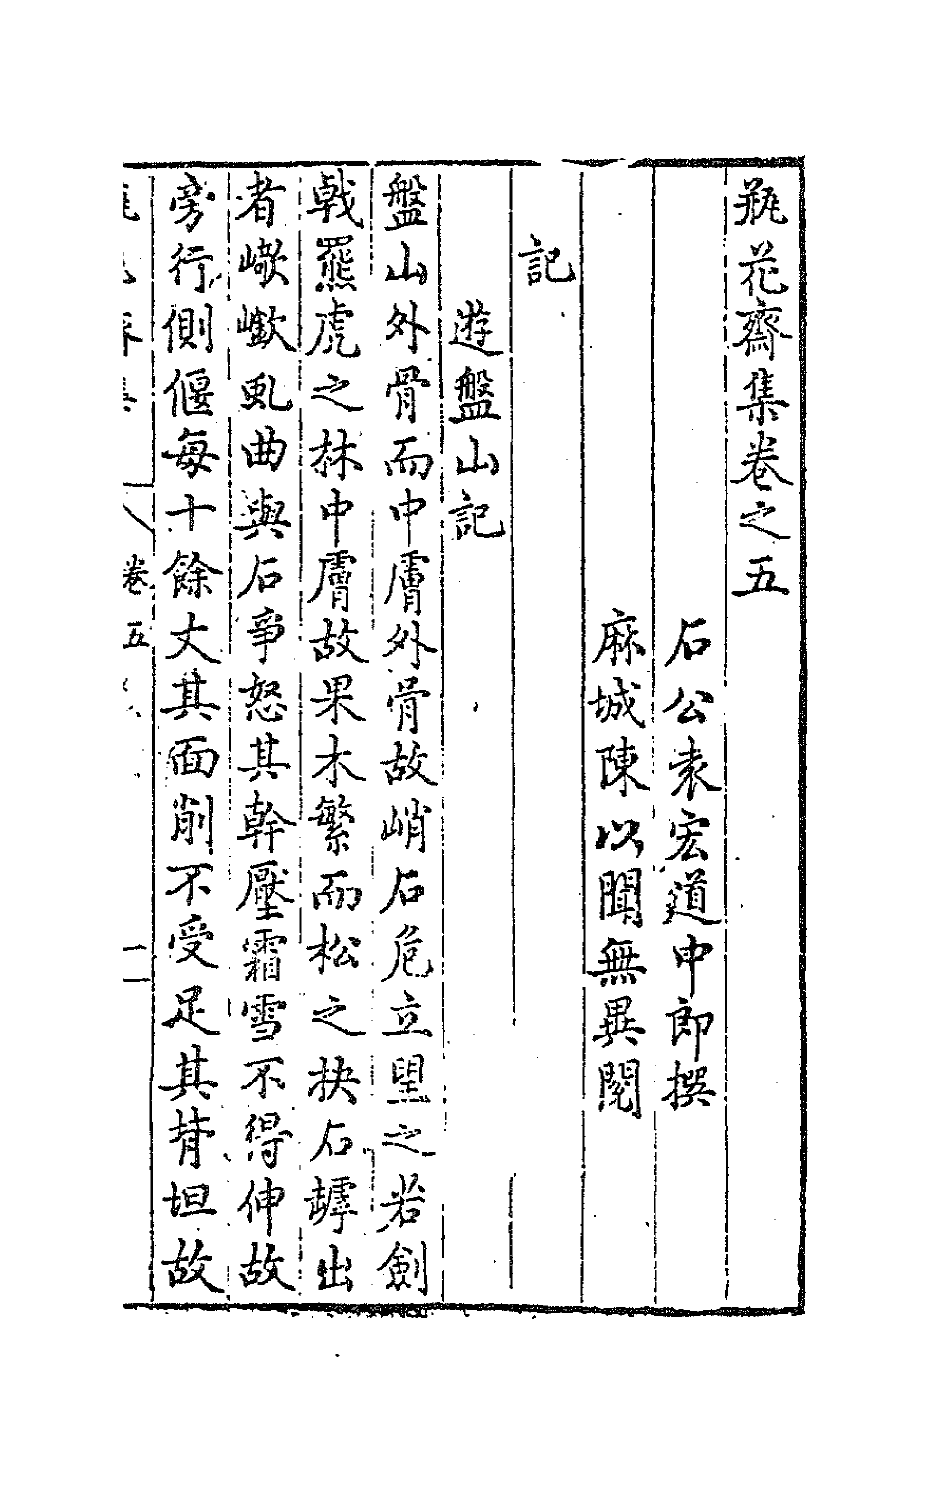 瓶花齋集卷之五
石公袁宏道申郎撰
麻城陳以聞無異閱
記
遊盤山記
盤山外骨而中膚外骨故峭石危立望之若劍
戟羆虎之林中膚故果木繁而松之抉石罅出
者嶔虬曲與石爭怒其幹壓霜雪不得伸故
旁行側偃每十餘丈其面削不受足其背坦故
卷五 一